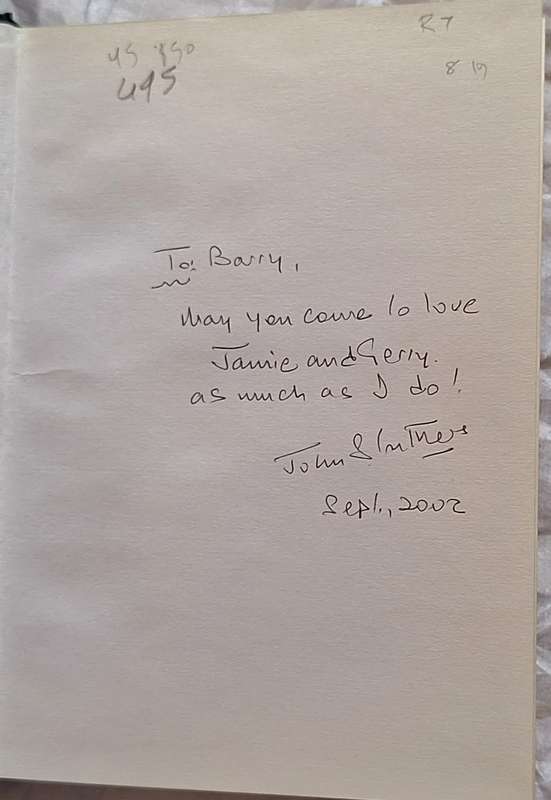 R7
495
8 19
To: Barry,
May you come to love
Jamie and Gerry.
as much as I do!
John
Sept., 2002